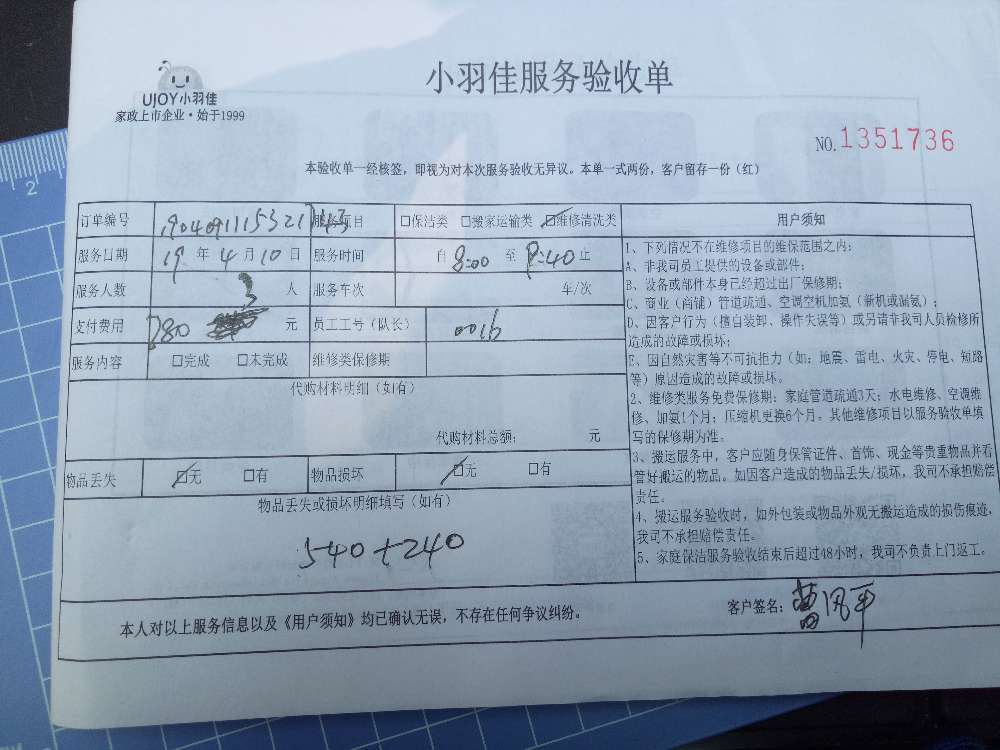 UJOY小羽佳
家政上市企业·始于1999
小羽佳服务验收单
NO.1351736
本验收单一经核签，即视为对本次服务验收无异议。本单一式两份，客户留存一份（红）
订单编号 服务项目 □保洁类 □搬家运输类 ☑维修清洗类
服务日期 19 年 4 月 10 日 服务时间 自 8:00 至 9:40 止
服务人数 3 人 服务车次 车/次
支付费用 780 元 员工工号（队长） 0016
服务内容 □完成 □未完成 维修类保修期
代购材料明细（如有）
代购材料总额： 元
物品丢失 ☑无 □有 物品损坏 ☑无 □有
物品丢失或损坏明细填写（如有）
540+240
用户须知
1、下列情况不在维修项目的维保范围之内：
A、非我司员工提供的设备或部件；
B、设备或部件本身已经超过出厂保修期；
C、商业（商铺）管道疏通、空调空机加氨（新机或漏氨）；
D、因客户行为（擅自装卸、操作失误等）或另请非我司人员检修所
造成的故障或损坏；
E、因自然灾害等不可抗拒力（如：地震、雷电、火灾、停电、短路
等）原因造成的故障或损坏。
2、维修类服务免费保修期：家庭管道疏通3天；水电维修、空调维
修、加氨1个月；压缩机更换6个月。其他维修项目以服务验收单填
写的保修期为准。
3、搬运服务中，客户应随身保管证件、首饰、现金等贵重物品并看
管好搬运的物品。如因客户造成的物品丢失/损坏，我司不承担赔偿
责任。
4、搬运服务验收时，如外包装或物品外观无搬运造成的损伤痕迹，
我司不承担赔偿责任。
5、家庭保洁服务验收结束后超过48小时，我司不负责上门返工。
本人对以上服务信息以及《用户须知》均已确认无误，不存在任何争议纠纷。
客户签名：